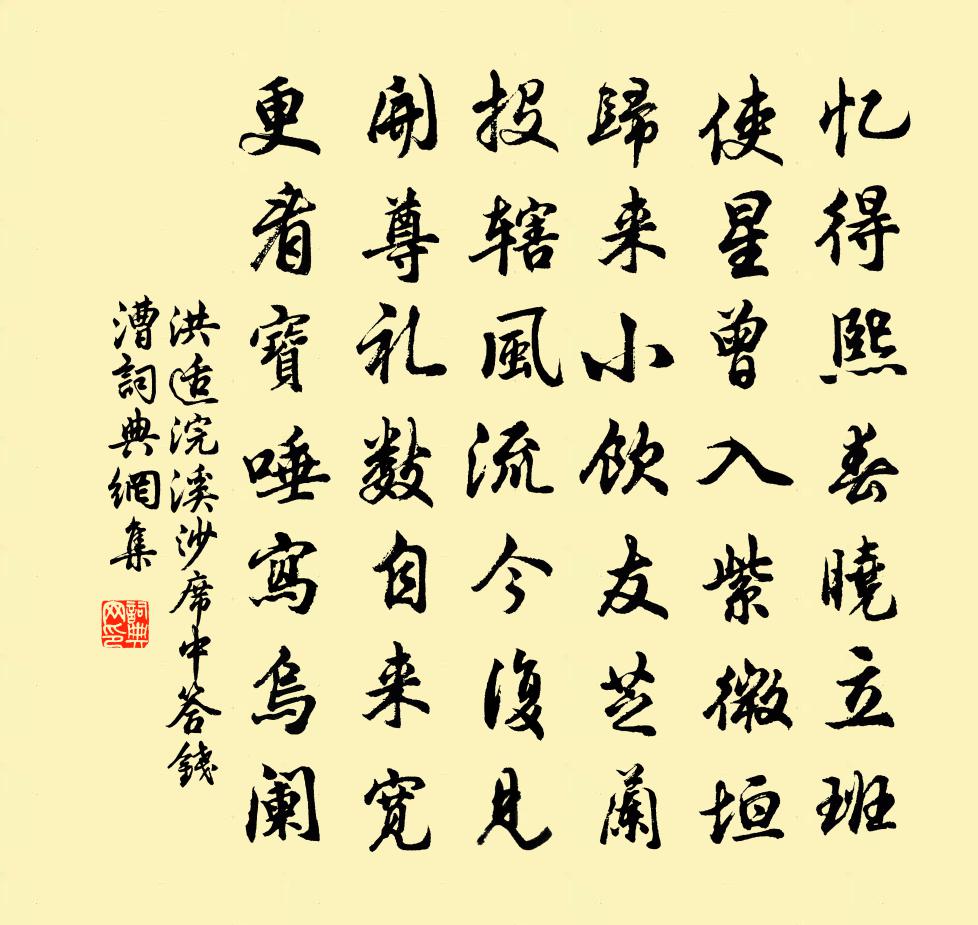 忆得熙春曉立班
使星曾入紫微垣
歸来小飲友芝蘭
投辖風流今復見
開尊礼数自来寬
更看寶唾寫烏阑
洪适浣溪沙席中答錢
漕詞典網集
詞典
网印